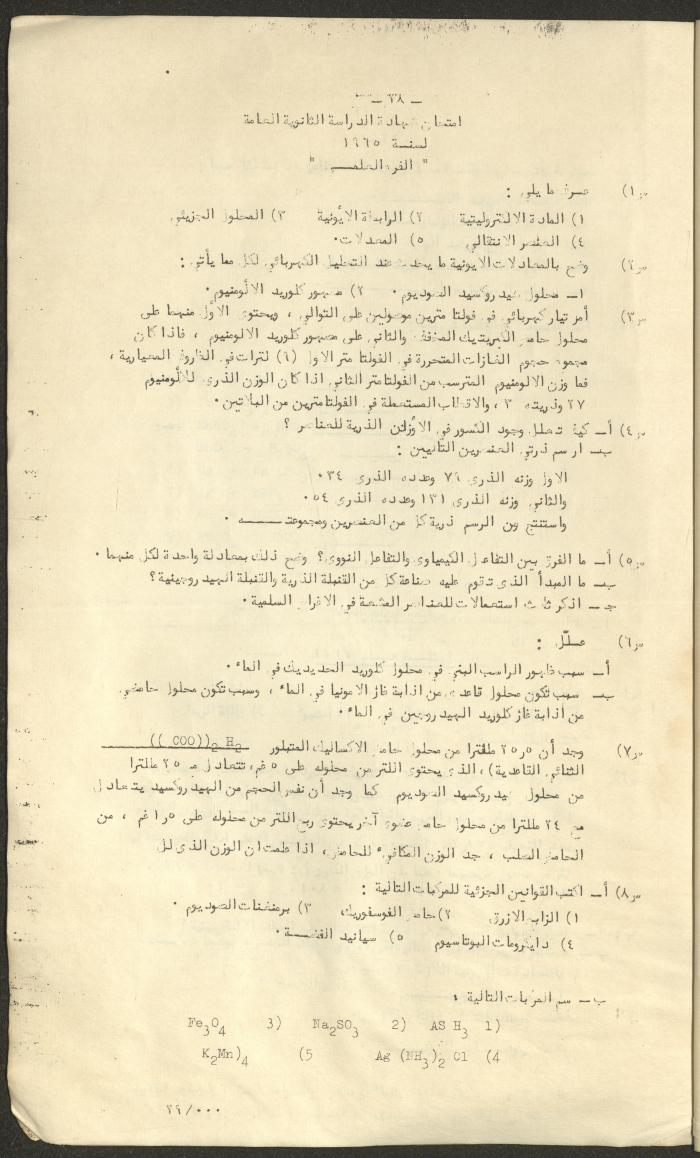 ـ ٢٨ ـ
امتحان شهادة الدراسة الثانوية العامة
لسنة ١٩٦٥
" الفرع العلمـــي "
س١) عرف ما يلي :
١) المادة الالكتروليتية ٢) الرابطة الايونية ٣) المحلول الجزيئي
٤) العنصر الانتقالي ٥) المعدلات٠
س٢) وضح بالمعادلات الايونية ما يحدث عند التحليل الكهربائي لكل مما يأتي :
١ـ محلول هيدروكسيد الصوديوم ٠ ٢) مصهور كلوريد الالومنيوم٠
س٣) أمر تيار كهربائي في فولتا مترين موصولين على التوالي ، ويحتوي الاول منهما على
محلول حامض الكبريتيك المخفف والثاني على مصهور كلوريد الالومنيوم ، فاذا كان
مجموع حجوم الغازات المتحررة في الفولتا متر الاول (٦) لترات في الظروف المعيارية ،
فما وزن الالومنيوم المترسب من الفولتامتر الثاني اذا كان الوزن الذري للالومنيوم
٢٧ وذريته ٣ ، والاقطاب المستعملة في الفولتامترين من البلاتين٠
س٤) أ ـ كيف تعلل وجود الكسور في الأوزان الذرية للعناصر ؟
ب ـ ارسم ذرتي العنصرين التاليين :
الاول وزنه الذري ٧٩ وعدده الذري ٣٤ ٠
والثاني وزنه الذري ١٣١ وعدده الذري ٥٤ ٠
واستنتج من الرسم ذرية كل من العنصرين ومجموعتـــــه ٠
س٥) أ ـ ما الفرق بين التفاعل الكيمياوي والتفاعل النووي؟ وضح ذلك بمعادلة واحدة لكل منهما ٠
ب ـ ما المبدأ الذي تقوم عليه صناعة كل من القنبلة الذرية والقنبلة الهيدروجينية ؟
جـ ـ اذكر ثلاث استعمالات للعناصر المشعة في الاغراض السلمية ٠
س٦) علّل :
أ ـ سبب ظهور الراسب البني في محلول كلوريد الحديديك في الماء ٠
ب ـ سبب تكون محلول قاعدي من اذابة غاز الامونيا في الماء ، وسبب تكون محلول حامضي
من اذابة غاز كلوريد الهيدروجين في الماء ٠
س٧) وجد أن ٢٥٫٥ مللترا من محلول حامض الاكساليك المتبلور (( COO))₂ H₂
الثنائي القاعدية) ، الذي يحتوي اللتر من محلوله على ٥ غم، تتعادل مع ٢٥ مللترا
من محلول هيدروكسيد الصوديوم كما وجد أن نفس الحجم من الهيدروكسيد يتعادل
مع ٢٤ مللترا من محلول حامض عضوي آخر يحتوي ربع اللتر من محلوله على ١٫٥ غم ، من
الحامض الصلب ، جد الوزن المكافىء للحامض ، اذا علمت ان الوزن الذي لل
س٨) أ ـ اكتب القوانين الجزئية للمركبات التالية :
١) الزاج الازرق ٢) حامض الفوسفوريك ٣) برمنغنات الصوديوم ٠
٤) دايكرومات البوتاسيوم ٥) سيانيد الفضـــة ٠
ب ـ سم المركبات التالية :
Fe₃O₄ 3) Na₂SO₃ 2) AS H₃ 1)
K₂Mn)₄ (5 Ag (NH₃)₂ Cl (4
٢٩/٠٠٠